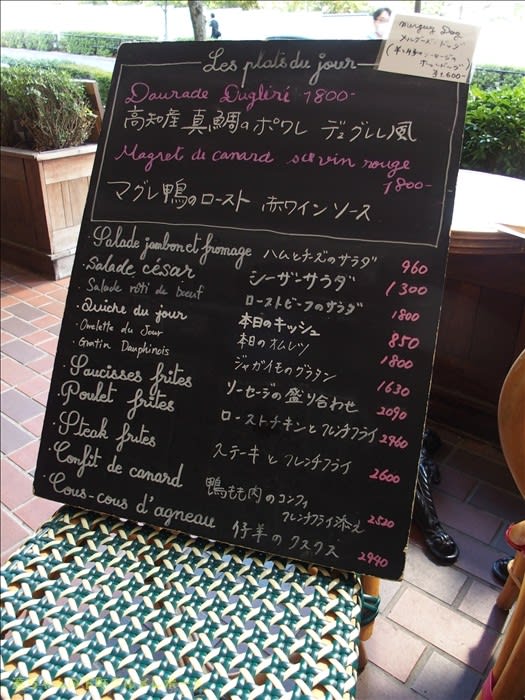 Merguez Dog
メルゲーズ・ドッグ
(羊と牛のソーセージの
ホットドッグ)
¥1,600-
Les plats du jour
Daurade Dugléré 1800-
高知産 真鯛のポワレ デュグレレ風
Magret de canard au vin rouge
1800-
マグレ鴨のロースト 赤ワインソース
・Salade jambon et fromage ハムとチーズのサラダ 960
・Salade césar シーザーサラダ 1300
・Salade rôti de boeuf ローストビーフのサラダ 1800
・Quiche du jour 本日のキッシュ 850
・Omelette du Jour 本日のオムレツ 1800
・Gratin Dauphinois ジャガイモのグラタン 1630
・Saucisses frites ソーセージの盛り合わせ 2090
・Poulet frites ローストチキンとフレンチフライ 2960
・Steak frites ステーキとフレンチフライ 2600
・Confit de canard 鴨もも肉のコンフィ
フレンチフライ添え 2520
・Cous-cous d'agneau 仔羊のクスクス 2940